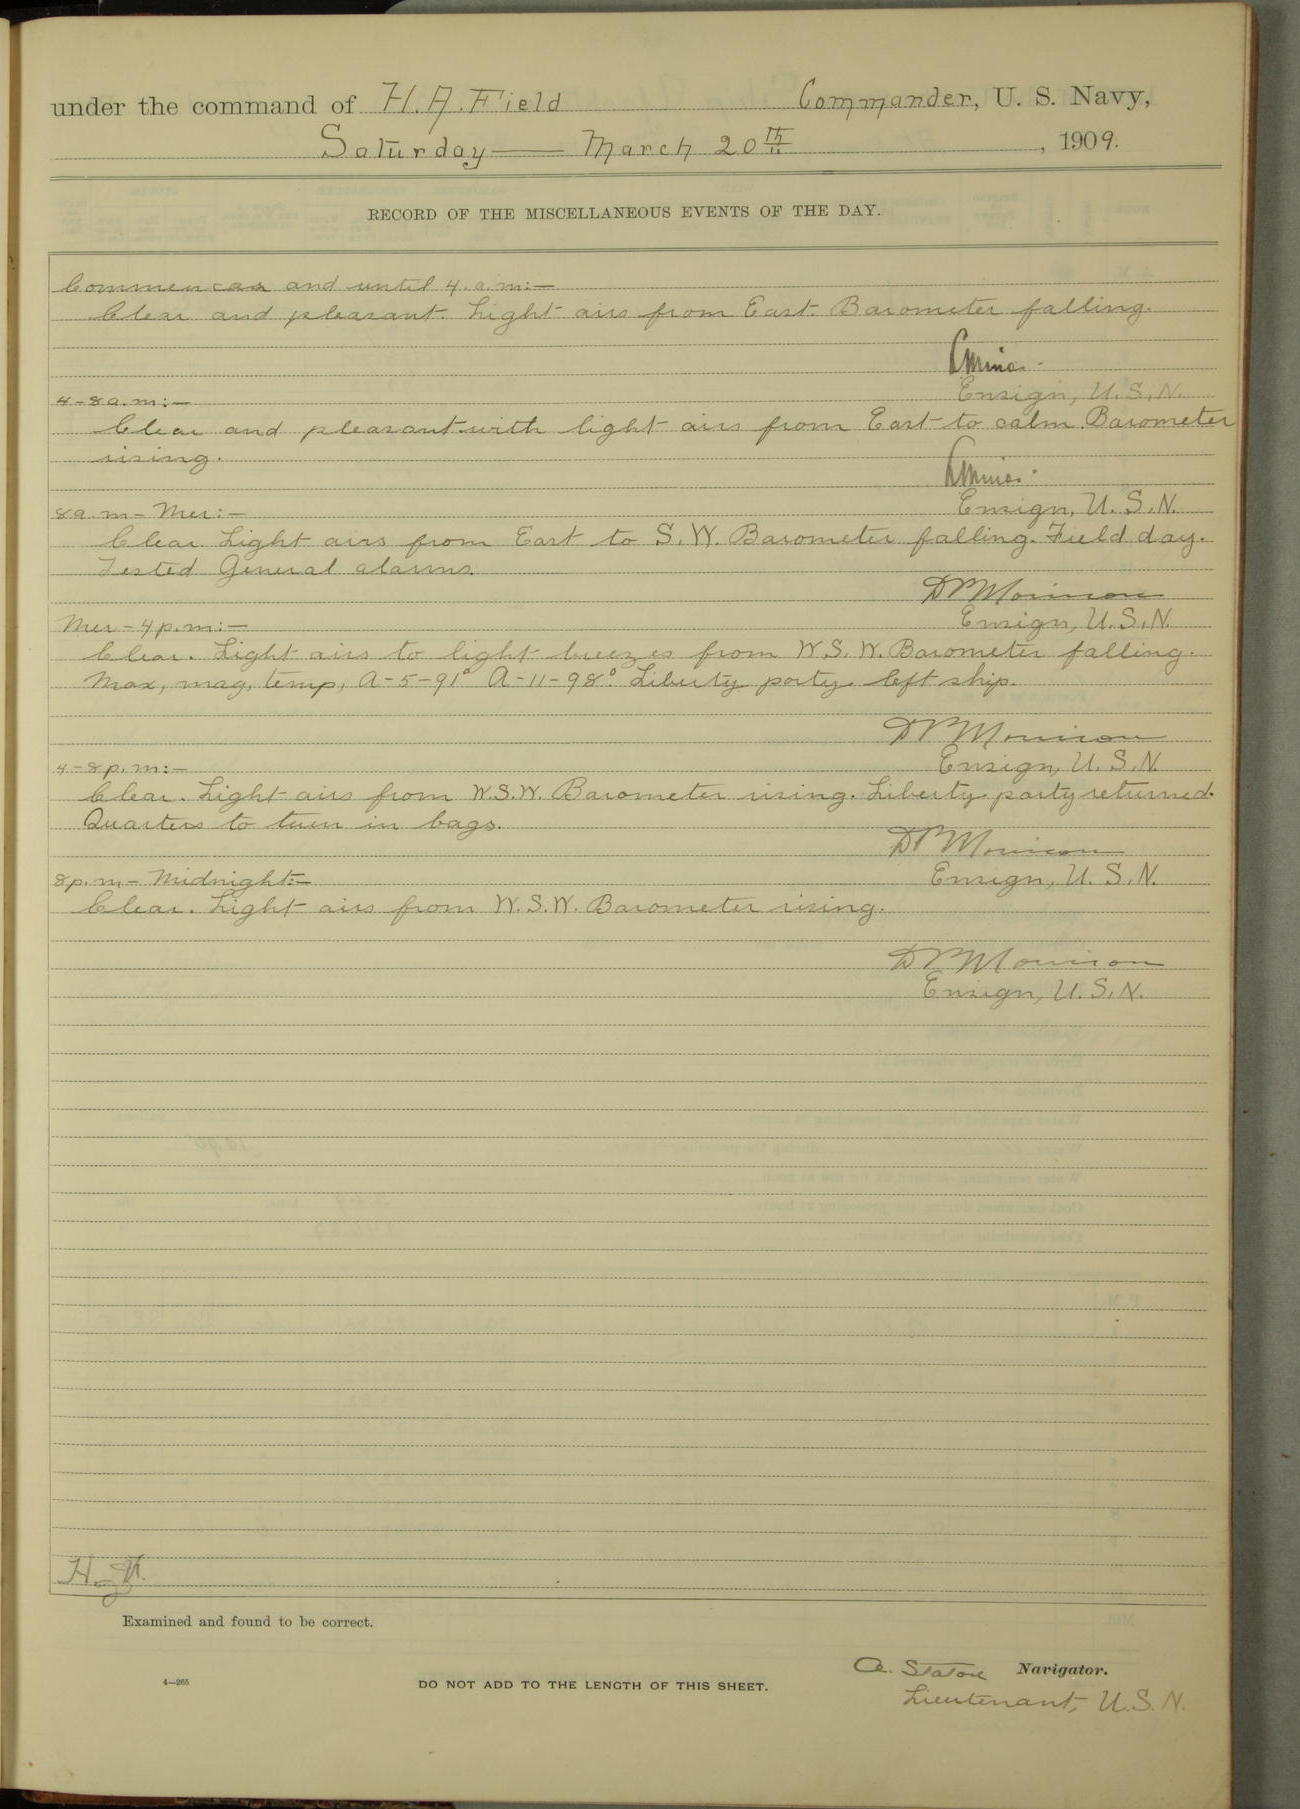 under the command of H. A. Field Commander, U. S. Navy,
Saturday — March 20th, 1909.
RECORD OF THE MISCELLANEOUS EVENTS OF THE DAY.
Commences and until 4. a.m:—
Clear and pleasant. Light airs from East. Barometer falling.
Ensign, U. S. N.
4-8 a.m:—
Clear and pleasant with light airs from East to calm. Barometer
rising.
Ensign, U. S. N.
8 a.m - Mer:—
Clear. Light airs from East to S. W. Barometer falling. Field day.
Tested General alarms.
D P Morrison
Ensign, U. S. N.
Mer - 4 p.m:—
Clear. Light airs to light breezes from W. S. W. Barometer falling.
Max, mag, temp, A-5-91° A-11-98° Liberty party left ship.
D P Morrison
Ensign, U. S. N.
4-8 p.m:—
Clear. Light airs from W.S.W. Barometer rising. Liberty party returned.
Quarters to turn in bags.
D P Morrison
Ensign, U. S. N.
8 p.m - Midnight:—
Clear. Light airs from W. S. W. Barometer rising.
D P Morrison
Ensign, U. S. N.
Examined and found to be correct.
A. Staton Navigator.
4—265
DO NOT ADD TO THE LENGTH OF THIS SHEET.
Lieutenant, U. S. N.